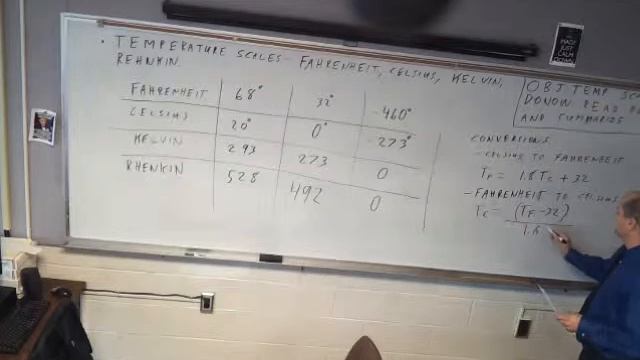 • TEMPERATURE SCALES - FAHRENHEIT, CELSIUS, KELVIN,
REHNKIN.
FAHRENHEIT 68° 32° -460°
CELSIUS 20° 0° -273°
KELVIN 293 273 0
RHENKIN 528 492 0
OBJ TEMP SCA
DONOW READ
AND SUMMARIZE
CONVERSIONS
- CELSIUS TO FAHRENHEIT
TF = 1.8 TC + 32
- FAHRENHEIT TO CELSIUS
TC = (TF - 32)
1.8